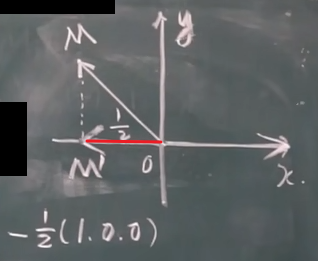 M
y
1/2
M'
0
x.
-1/2(1.0.0)